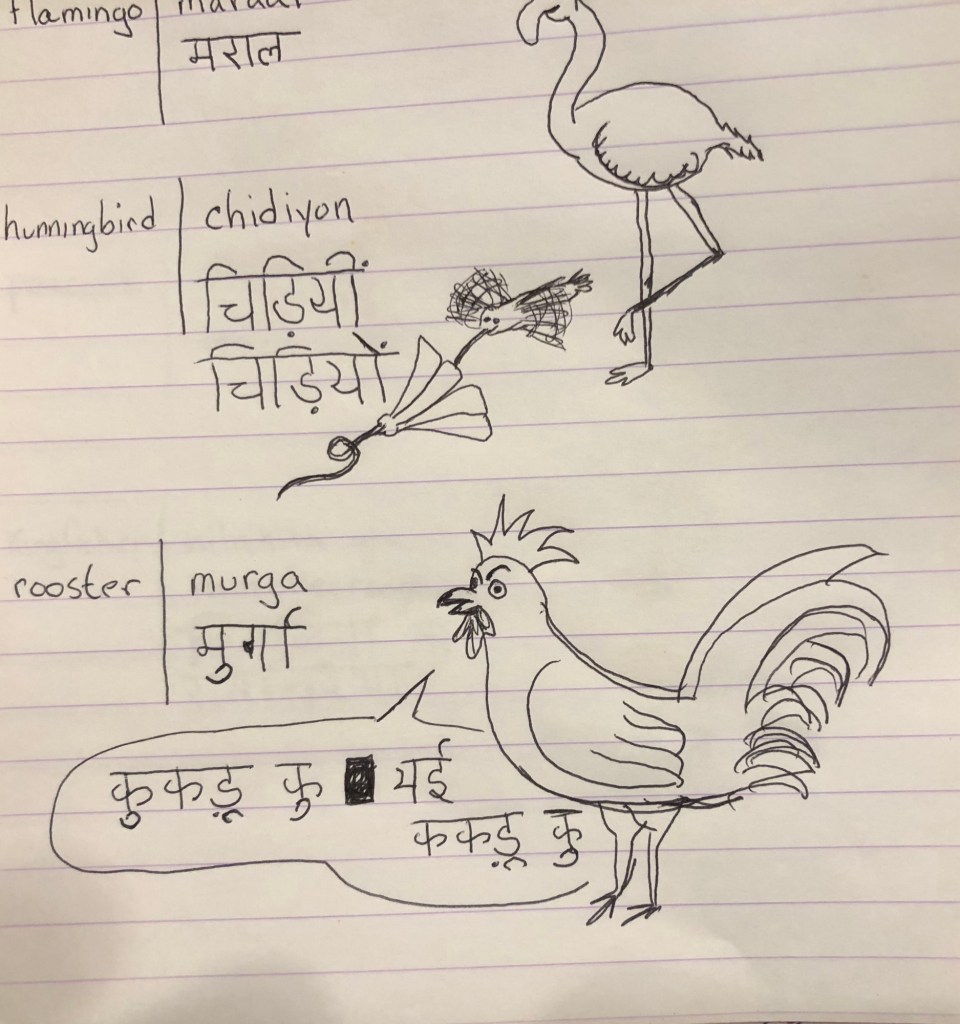 flamingo
मराल
hunningbird
chidiyon
चिड़ियीं
चिड़ियों
rooster
murga
मुर्गा
कुकड़ू कु यई
ककड़ू कु